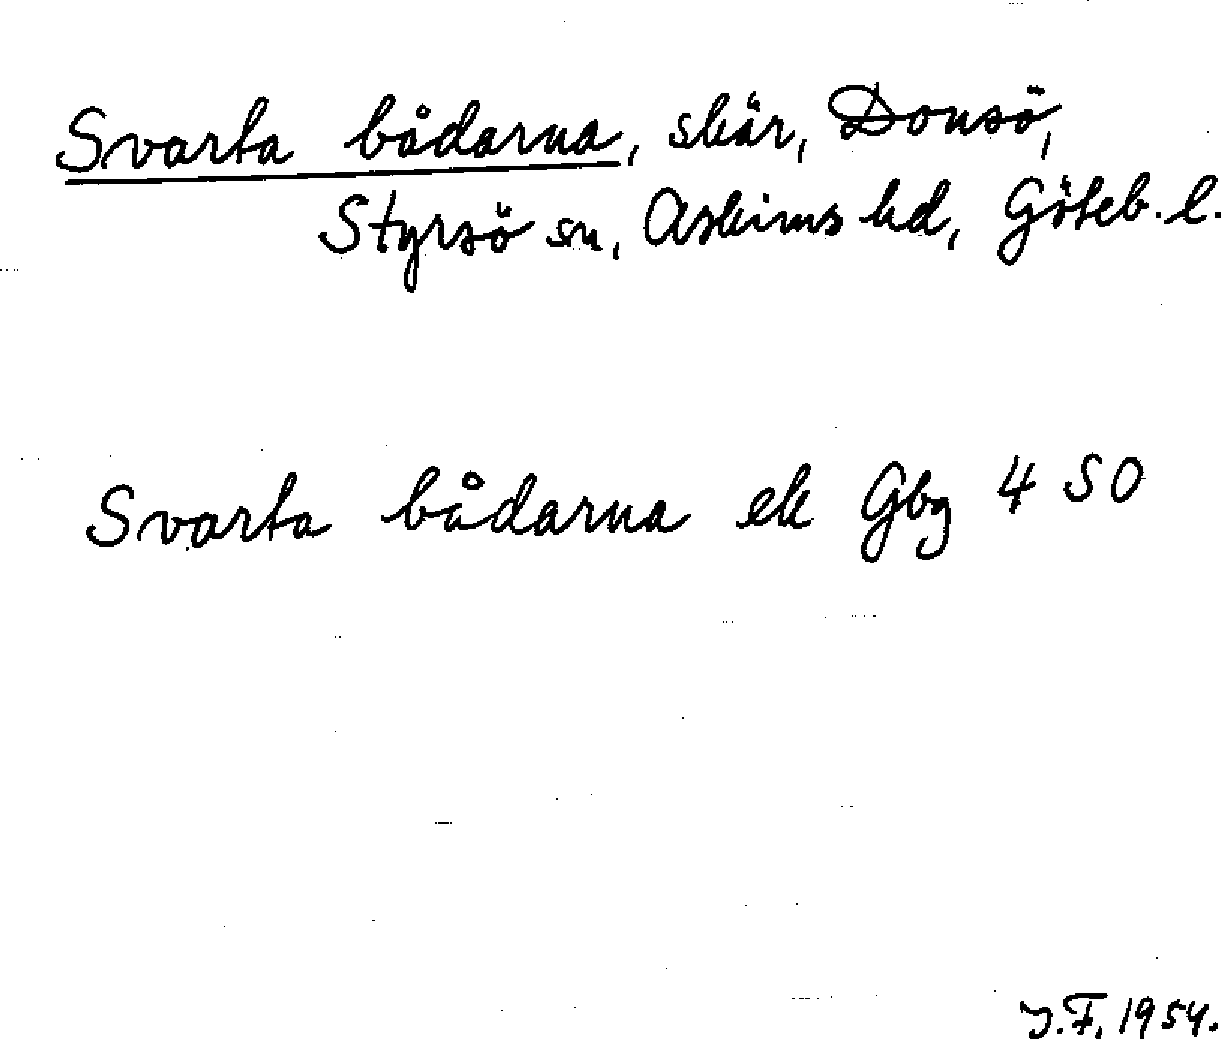 Svarta bådarna, skär, Donsö,
Styrsö sn, Askims hd, Göteb. l.
Svarta bådarna ek Gbg 4 SO
J.F. 1954.